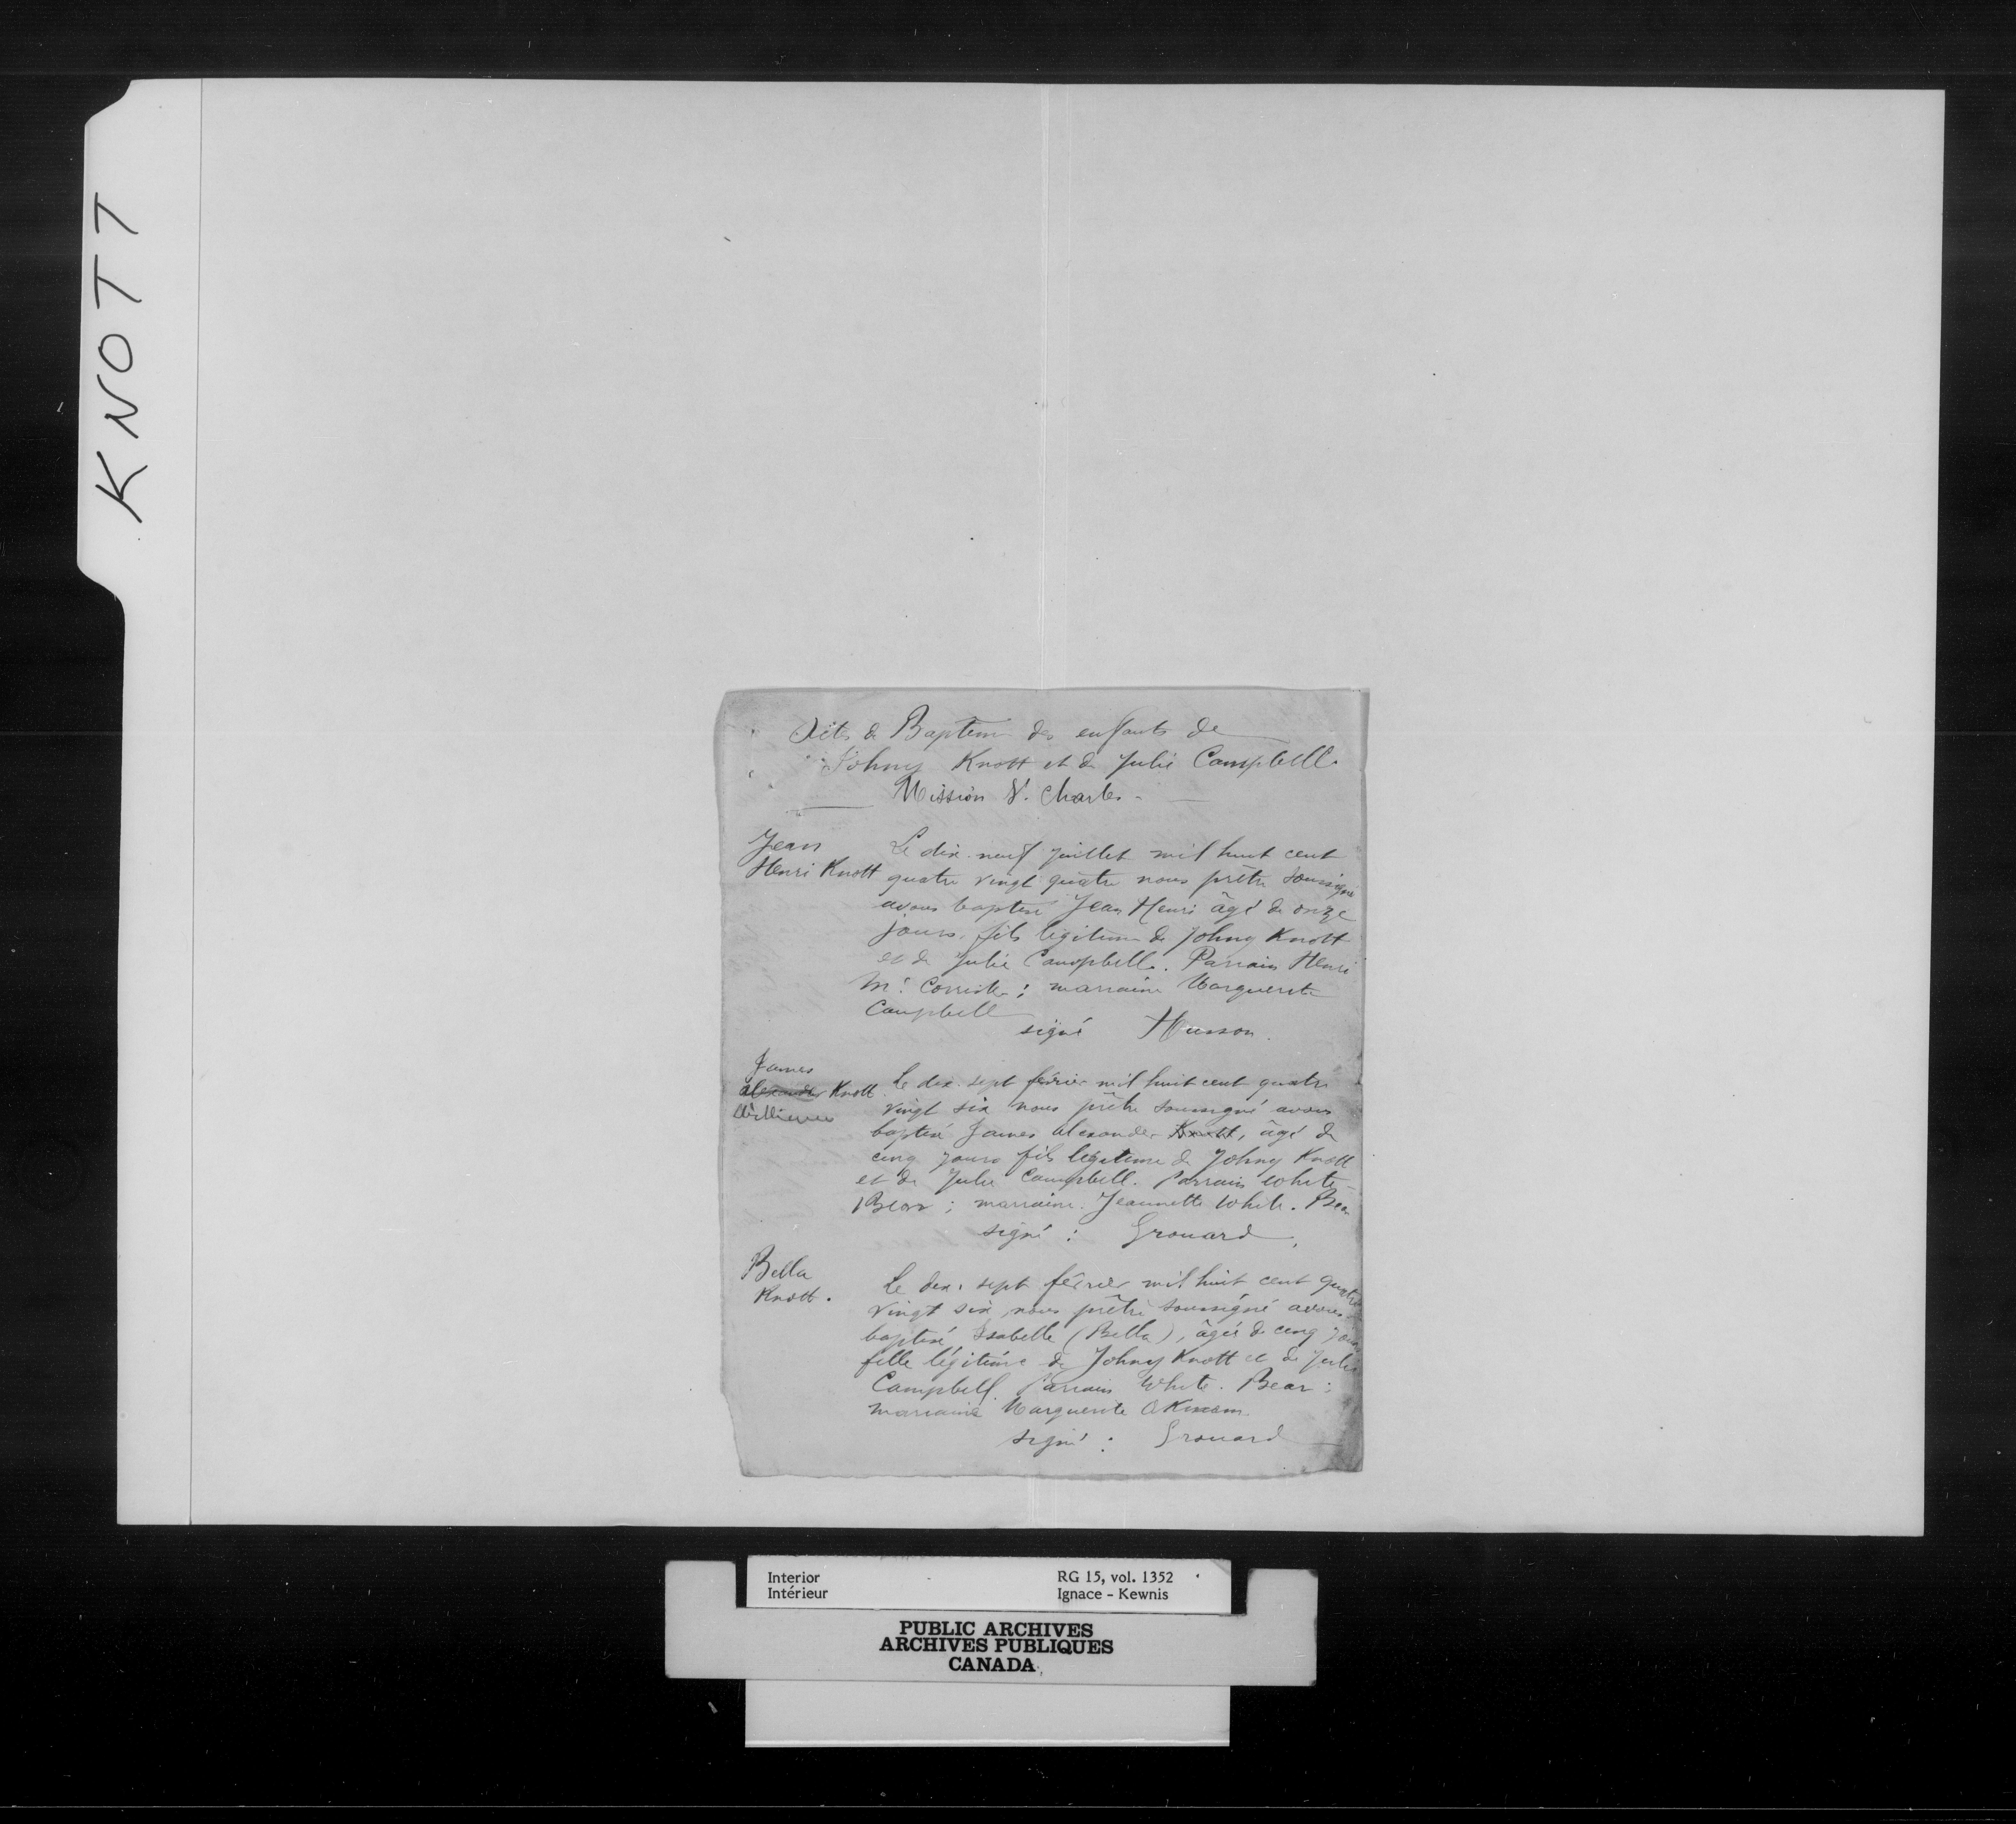 KNOTT
Actes de Baptême des enfants de
Johny Knott et de Julie Campbell.
Mission St. Charles -
Jean
Henri Knott
Le dix-neuf juillet mil huit cent
quatre vingt quatre nous prêtre soussigné
avons baptisé Jean Henri âgé de onze
jours, fils légitime de Johny Knott
et de Julie Campbell. Parrain Henri
Mc ; marraine Marguerite
Campbell
signé Husson.
James
Alexander Knott.
William
Le dix-sept février mil huit cent quatre
vingt six nous prêtre soussigné avons
baptisé James Alexander Knott, âgé de
cinq jours fils légitime de Johny Knott
et de Julie Campbell. Parrain White-
Bear ; marraine. Jeannette White. Bear
signé : Grouard.
Bella
Knott.
Le dix-sept février mil huit cent quatre
vingt six nous prêtre soussigné avons
baptisé Isabelle (Bella), âgée de cinq jours
fille légitime de Johny Knott et de Julie
Campbell. Parrain White. Bear ;
marraine Marguerite
signé : Grouard
Interior
Intérieur
RG 15, vol. 1352
Ignace - Kewnis
PUBLIC ARCHIVES
ARCHIVES PUBLIQUES
CANADA